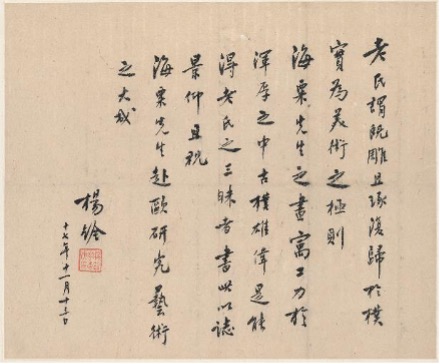 老氏謂既雕且琢復歸於樸
實為美術之極則
海粟先生之畫寓工力於
渾厚之中古樸雄偉是能
得老氏之三昧者書此以誌
景仰且祝
海粟先生赴歐研究藝術
之大成
楊銓
十七年十一月十三日